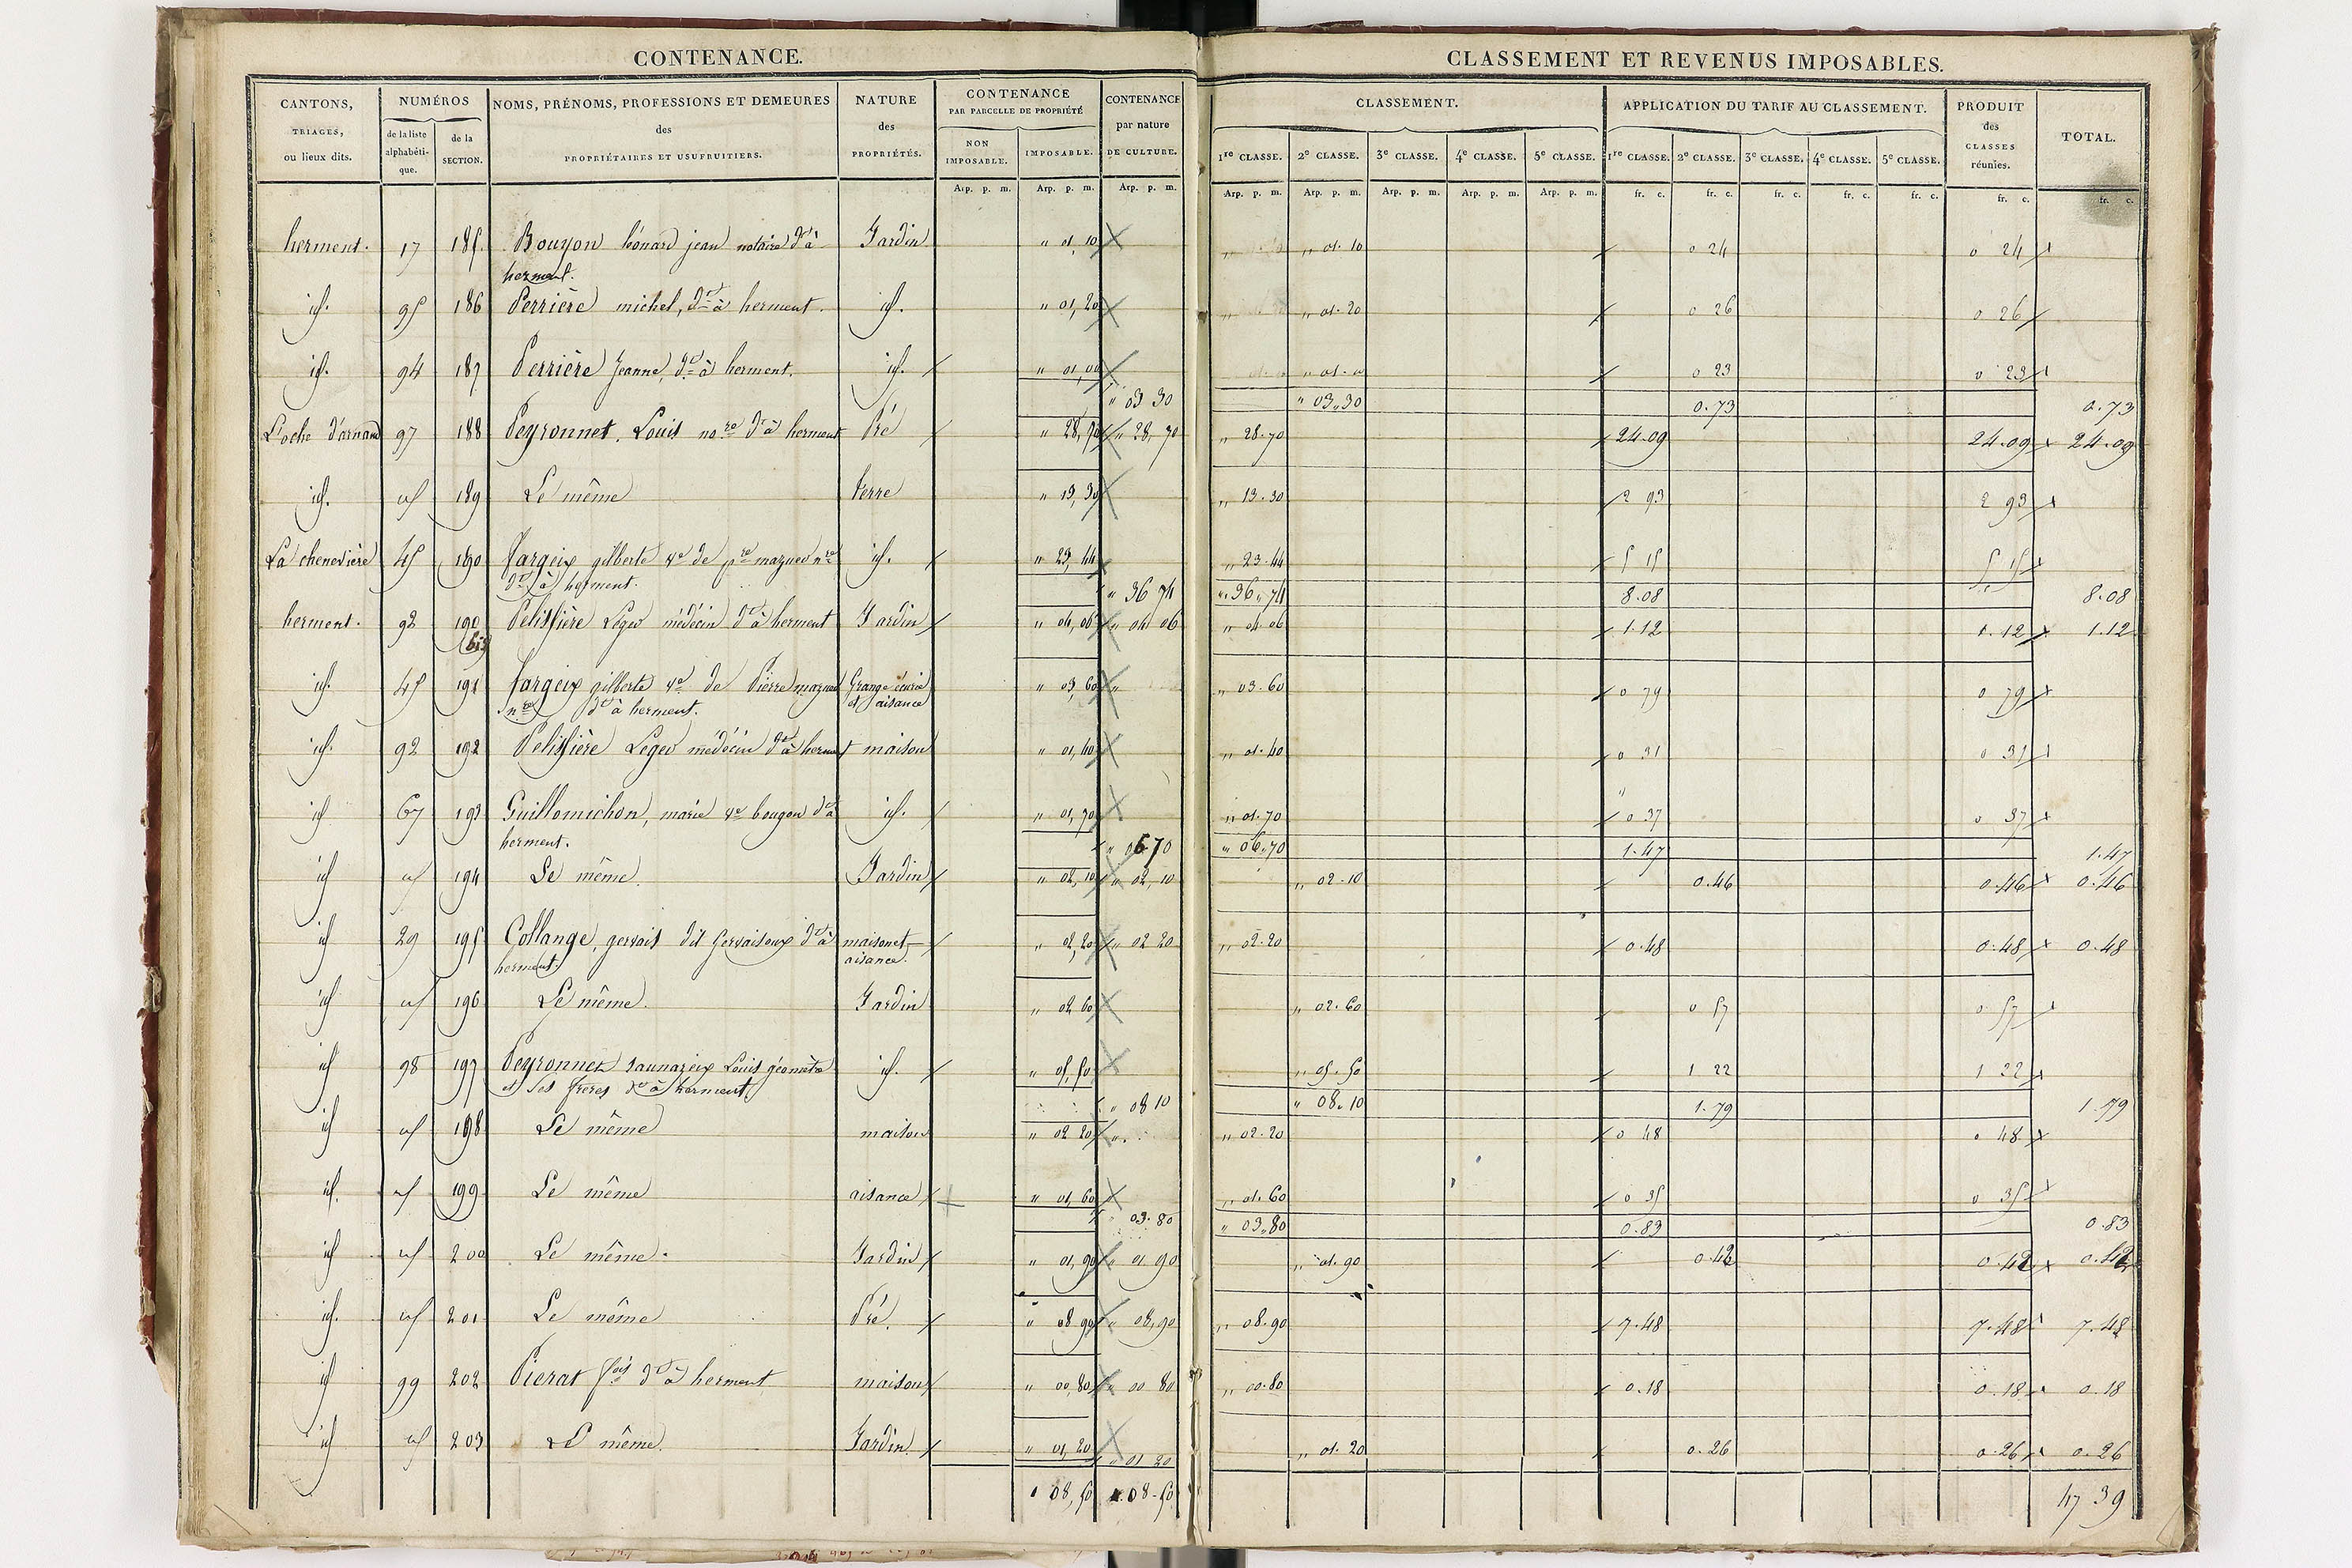 CONTENANCE.
CLASSEMENT ET REVENUS IMPOSABLES.
CANTONS, TRIAGES, ou lieux dits.
NUMÉROS
de la liste alphabétique.
de la SECTION.
NOMS, PRÉNOMS, PROFESSIONS ET DEMEURES des PROPRIÉTAIRES ET USUFRUITIERS.
NATURE des PROPRIÉTÉS.
CONTENANCE PAR PARCELLE DE PROPRIÉTÉ
NON IMPOSABLE.
IMPOSABLE.
CONTENANCE par nature DE CULTURE.
CLASSEMENT.
1re CLASSE. 2e CLASSE. 3e CLASSE. 4e CLASSE. 5e CLASSE.
APPLICATION DU TARIF AU CLASSEMENT.
1re CLASSE. 2e CLASSE. 3e CLASSE. 4e CLASSE. 5e CLASSE.
PRODUIT des CLASSES réunies.
TOTAL.
Arp. p. m. Arp. p. m. Arp. p. m. Arp. p. m. Arp. p. m. Arp. p. m. Arp. p. m. Arp. p. m. fr. c. fr. c. fr. c. fr. c. fr. c. fr. c. fr. c.
herment. 17 185. Bouyon léonard jean notaire dt à Jardin " 01, 10 " 01. 10 0 24 0 24
herment.
id. 95 186 Perrière michel, dt à herment. id. " 01, 20 " 01. 20 0 26 0 26
id. 94 187 Perrière Jeanne, dt à herment. id. " 01, 00 " 01. 0 0 23 0 23
" 03 30 " 03. 30 0.73 0.73
L'oche d'arnaud 97 188 Peyronnet. Louis nore dt à herment Pré " 28, 70 " 28, 70 " 28.70 24.09 24.09 24.09
id. id 189 Le même terre " 13, 30 " 13.30 2 93 2 93
La chenevière 45 190 fargeix gilberte ve de pre mazuer nre id. " 23, 44 " 23.44 5 15 5 15
dt à herment.
" 36 74 " 36. 74 8.08 8.08
herment. 92 190 Pelissière Léger médécin dt à herment Jardin " 04, 06 " 04 06 " 04.06 1.12 1.12 1.12
bis
id. 45 191 fargeix gilberte ve de Pierre mazuer Grange écurie " 03, 60 " 03.60 0 79 0 79
nre dt à herment. et aisance
id. 92 192 Pelissière Leger médécin dt à herment maison " 01, 40 " 01.40 0 31 0 31
id 67 193 Guillomichon, marie ve bougon dt à id. " 01, 70 " 01.70 0 37 0 37
herment.
" 06 70 " 06.70 1.47 1.47
id id 194 Le même. Jardin " 02, 10 " 02, 10 " 02.10 0.46 0.46 0.46
id 29 195 Collange, gervais dit Gervaisoux dt à maison et " 02, 20 " 02 20 " 02.20 0.48 0.48 0.48
herment. aisance.
id id 196 Le même. Jardin " 02 60 " 02.60 0 57 0 57
id 98 197 Peyronnet saunazeix Louis géomètre id. " 05, 50 " 05.50 1 22 1 22
et ses frères dt à herment
" 08 10 " 08.10 1.79 1.79
id id 198 Le même maison " 02 20 " 02.20 0 48 0 48
id. id 199 Le même aisance " 01, 60 " 01.60 0 35 0 35
" 03.80 " 03.80 0.83 0.83
id id 200 Le même. Jardin " 01, 90 " 01 90 " 01.90 0.42 0.42 0.42
id. id 201 Le même Pré. " 08 90 " 08,90 " 08.90 7.48 7.48 7.48
id 99 202 Pierat fois dt à herment maison " 00, 80 " 00 80 " 00.80 0.18 0.18 0.18
id id 203 Le même. Jardin " 01, 20 " 01 20 " 01.20 0.26 0.26 0.26
1 08, 50 1. 08. 50 47 39